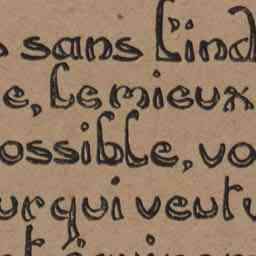 sans l'ind
e, le mieux
ossible, vo
ur qui veut